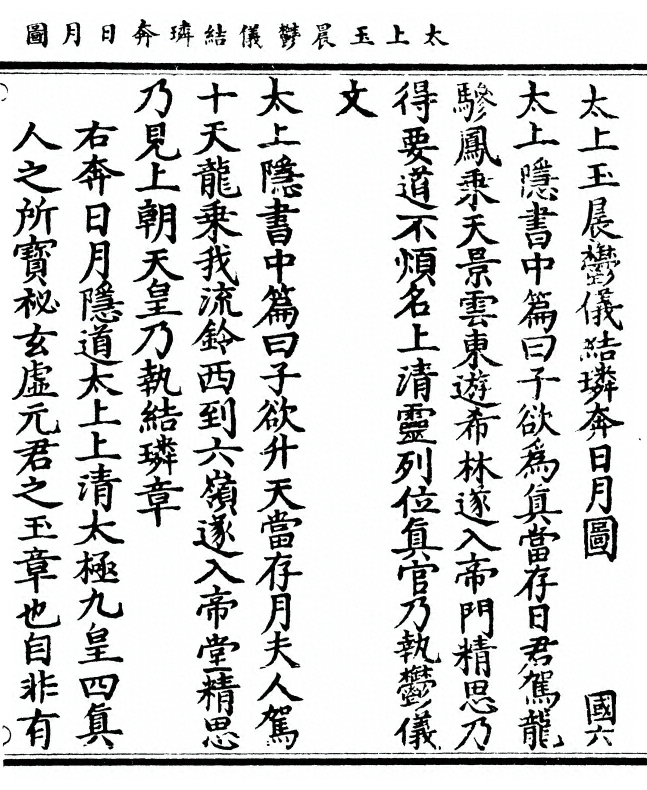 太上玉晨鬱儀結璘奔日月圖
太上玉晨鬱儀結璘奔日月圖 國六
太上隱書中篇曰子欲為眞當存日君駕龍
驂鳳乘天景雲東遊希林遂入帝門精思乃
得要道不煩名上清靈列位眞官乃執鬱儀
文
太上隱書中篇曰子欲升天當存月夫人駕
十天龍乘我流鈴西到六嶺遂入帝堂精思
乃見上朝天皇乃執結璘章
右奔日月隱道太上上清太極九皇四眞
人之所寶祕玄虛元君之玉章也自非有